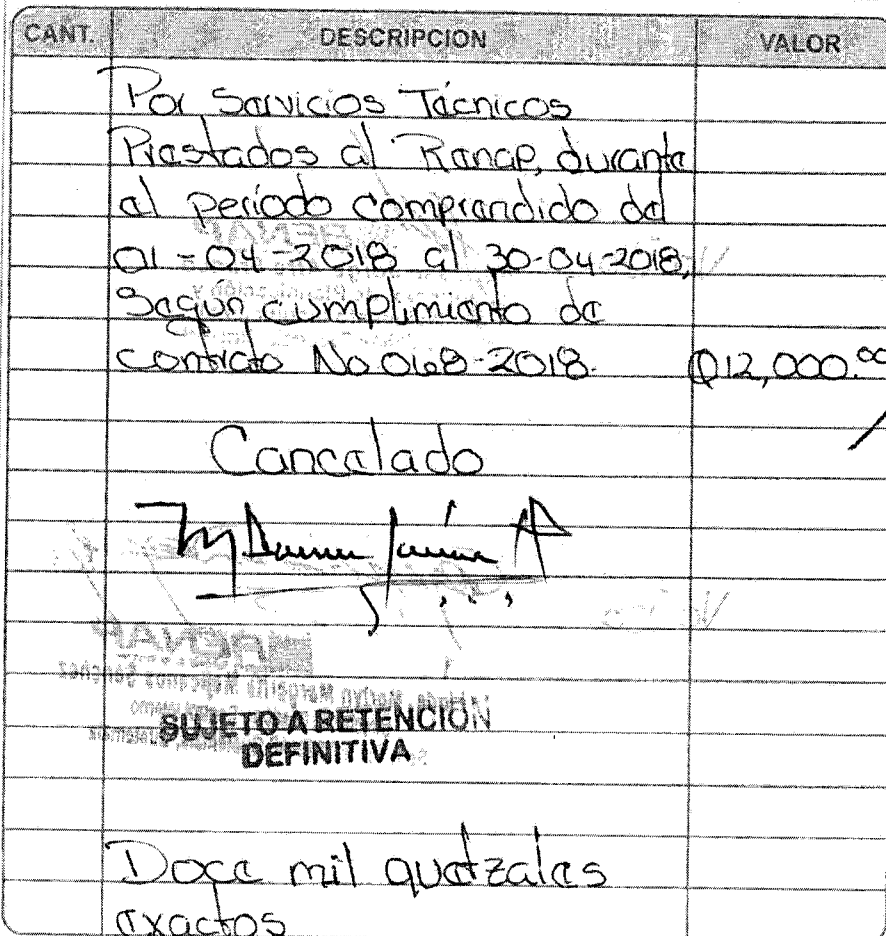 CANT. DESCRIPCION VALOR
Por Servicios Técnicos
Prestados al Renap, durante
el período comprendido del
01-04-2018 al 30-04-2018,
Según cumplimiento de
contrato No 068-2018. Q12,000.00
Cancelado
RENAP
SUJETO A RETENCIÓN
DEFINITIVA
Doce mil quetzales
exactos